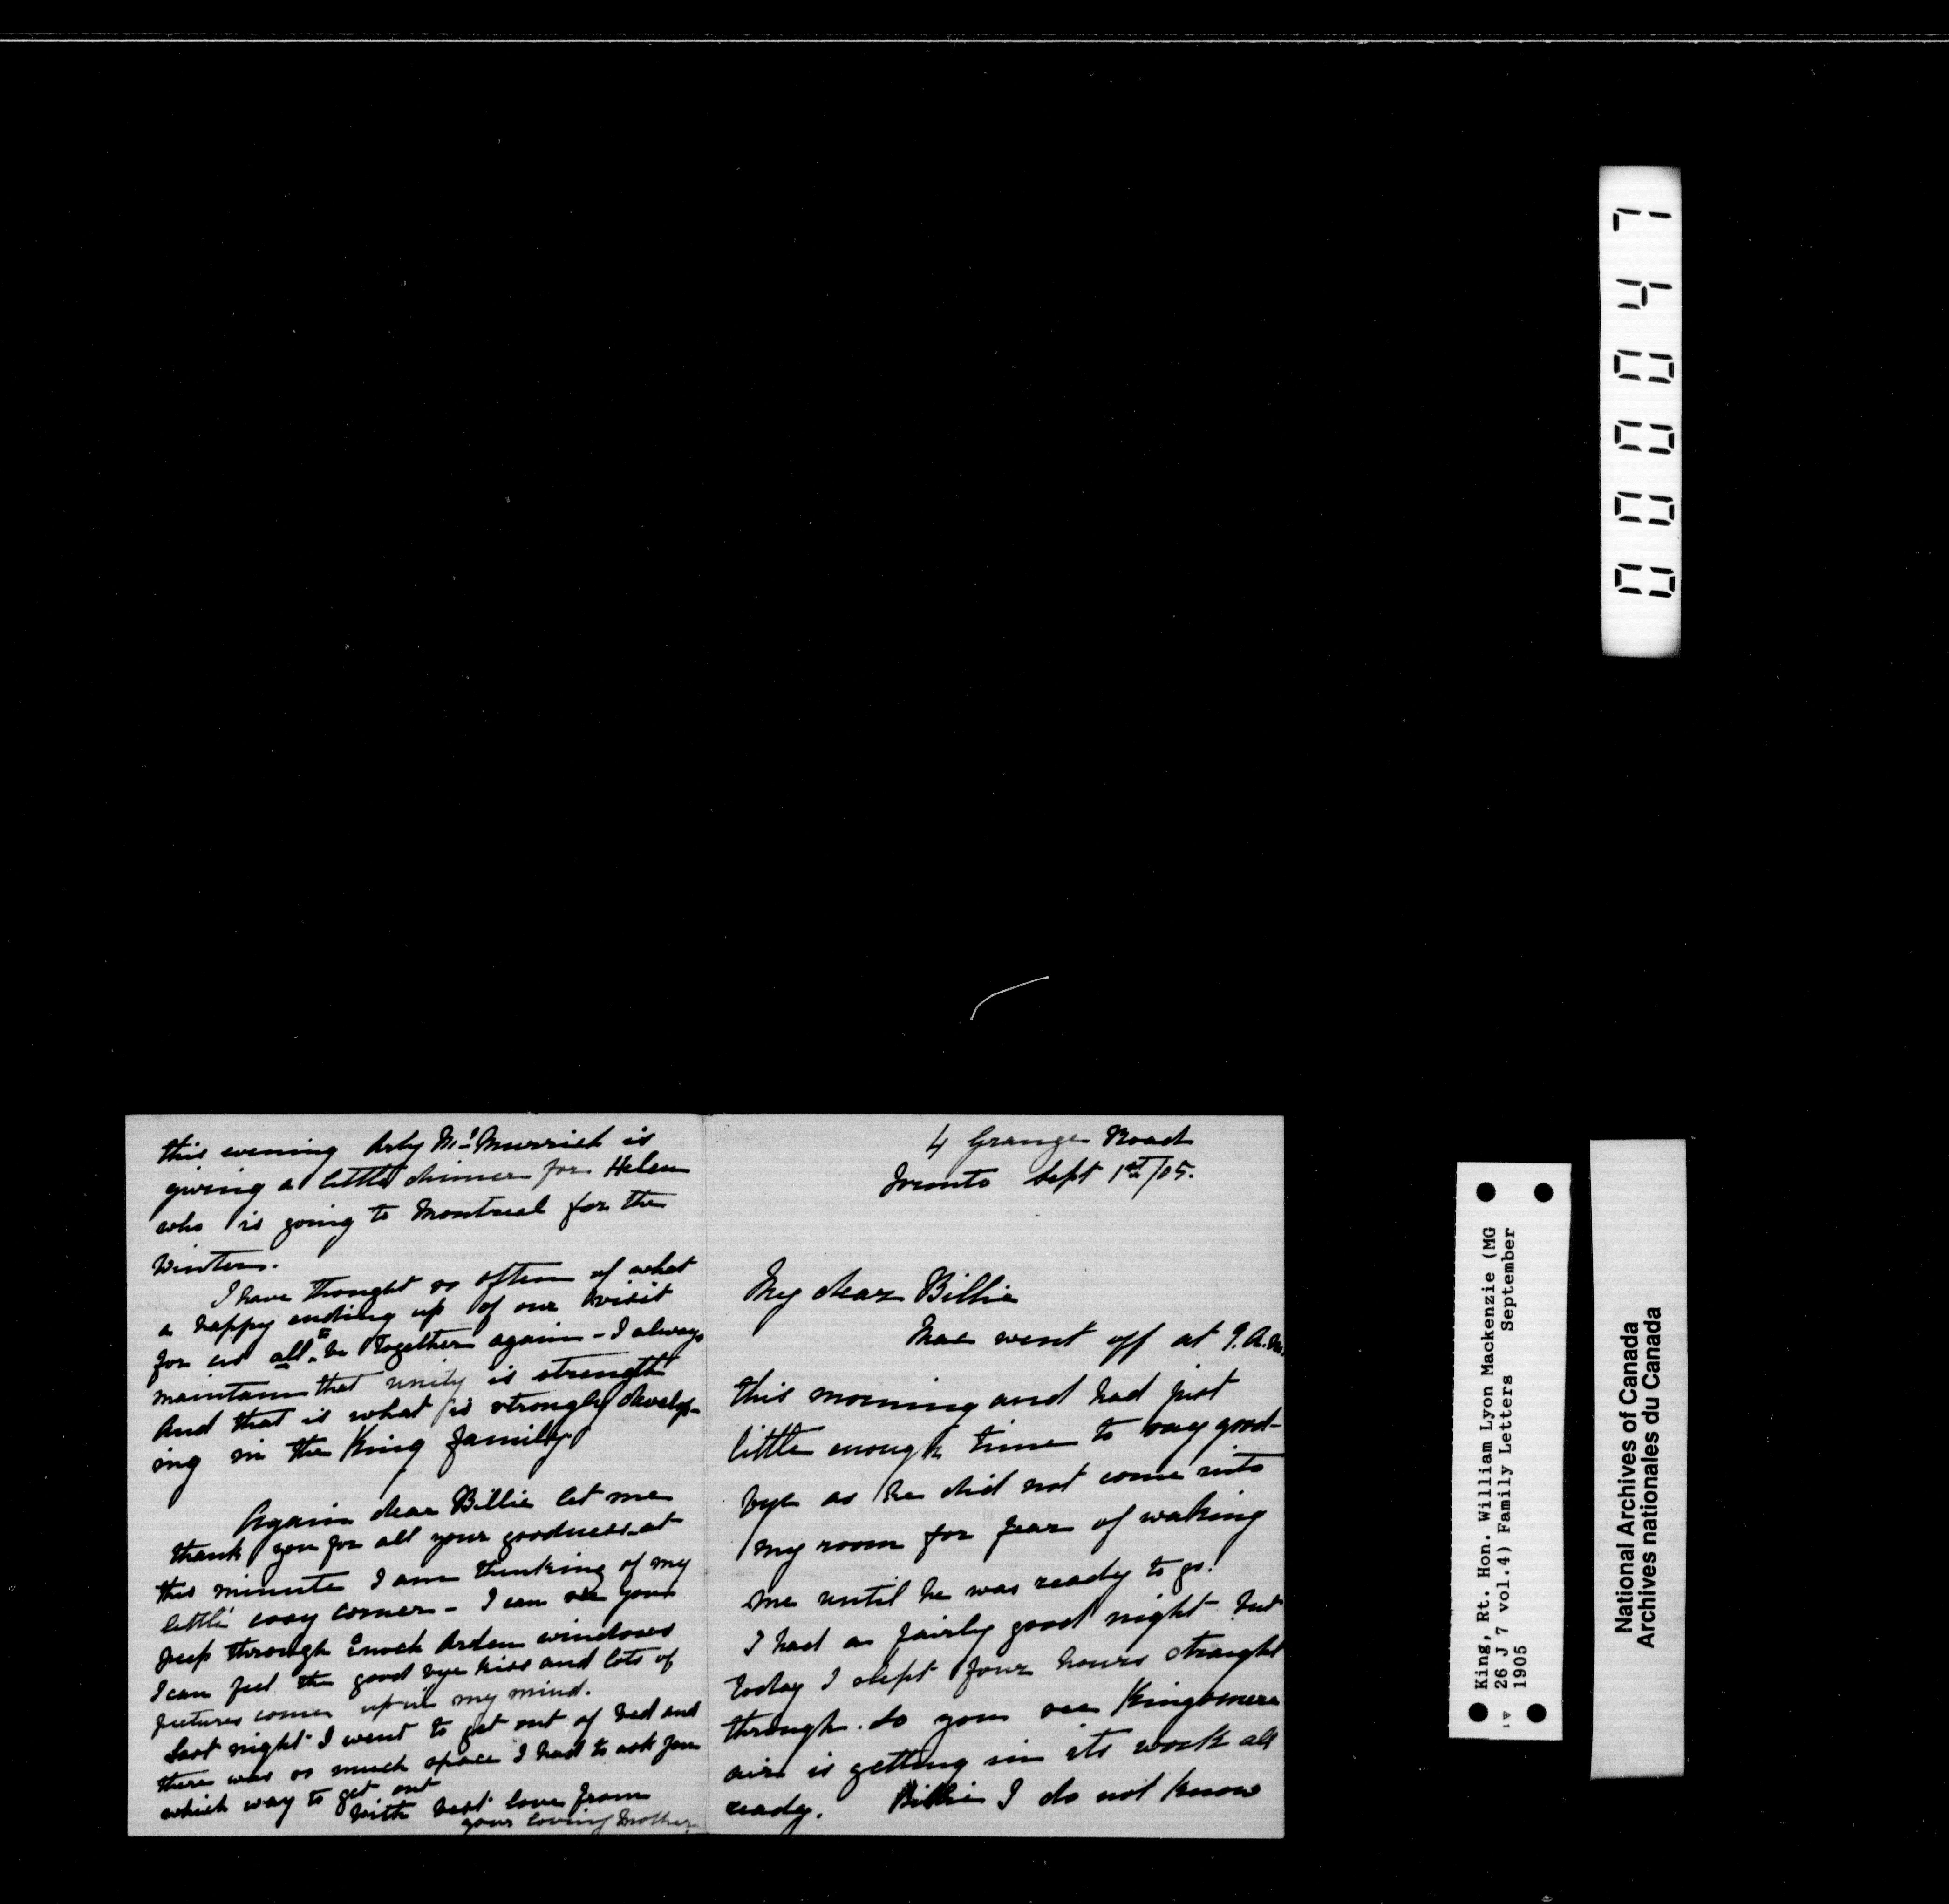 4 Grange Road
Toronto Sept 1st/05.
My dear Billie
Mac went off at 9. A.M.
this morning and had just
little enough time to say good-
bye as he did not come into
my room for fear of waking
me until he was ready to go.
I had a fairly good night but
today I slept four hours straight
through. So you see Kingsmere
air is getting in its work all
ready. Billie I do not know
this evening McMurrich is
giving a little dinner for Helen
who is going to Montreal for the
winter.
I have thought so often of what
a happy ending up of our visit
for us all to be together again - I always
maintain that unity is strength
and that is what is strongly develop-
ing in the King family
Again dear Billie let me
thank you for all your goodness - at
this minute I am thinking of my
little cosy corner - I can see you
peep through Enoch Arden windows
I can feel the good bye kiss and lots of
pictures come up in my mind.
Last night I went to get out of bed and
there was so much space I had to ask Jen
which way to get out
With best love from
your loving Mother
000047
King, Rt. Hon. William Lyon Mackenzie (MG
26 J 7 vol.4) Family Letters September
1905
National Archives of Canada
Archives nationales du Canada